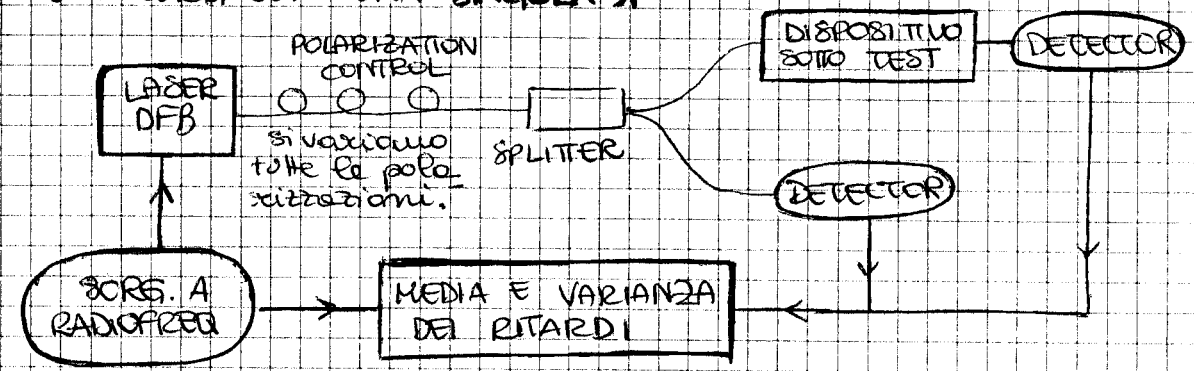 POLARIZATION
CONTROL
LASER
DFB
si variano
tutte le pola_
rizzazioni.
SPLITTER
DISPOSITIVO
SOTTO TEST
DETECTOR
DETECTOR
SORG. A
RADIOFREQ
MEDIA E VARIANZA
DEI RITARDI